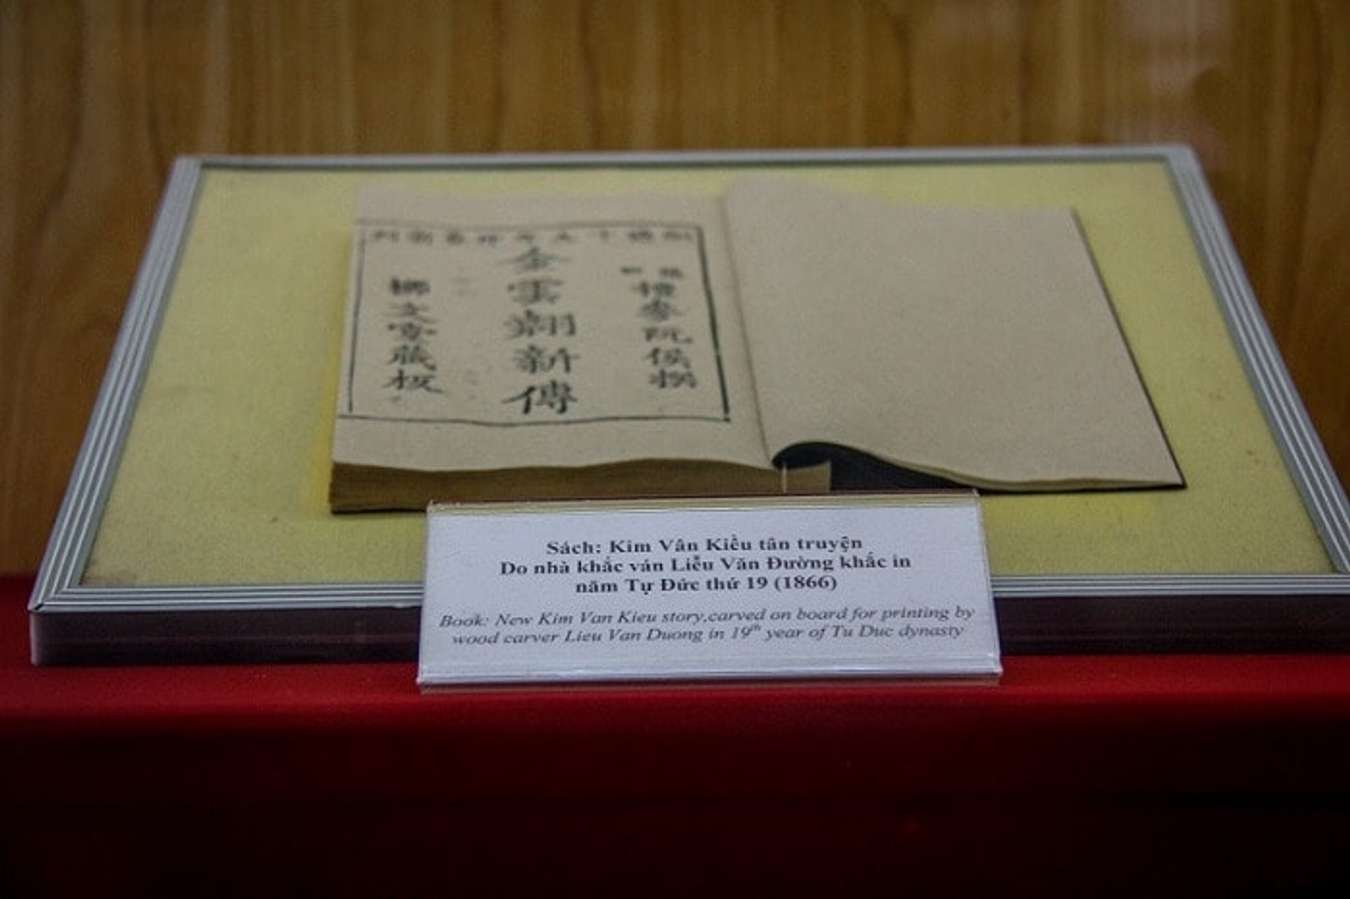 嗣德十
禮參阮侯撰
金雲翹新傳
柳文堂藏板
Sách: Kim Vân Kiều tân truyện
Do nhà khắc ván Liễu Văn Đường khắc in
năm Tự Đức thứ 19 (1866)
Book: New Kim Van Kieu story,carved on board for printing by
wood carver Lieu Van Duong in 19th year of Tu Duc dynasty